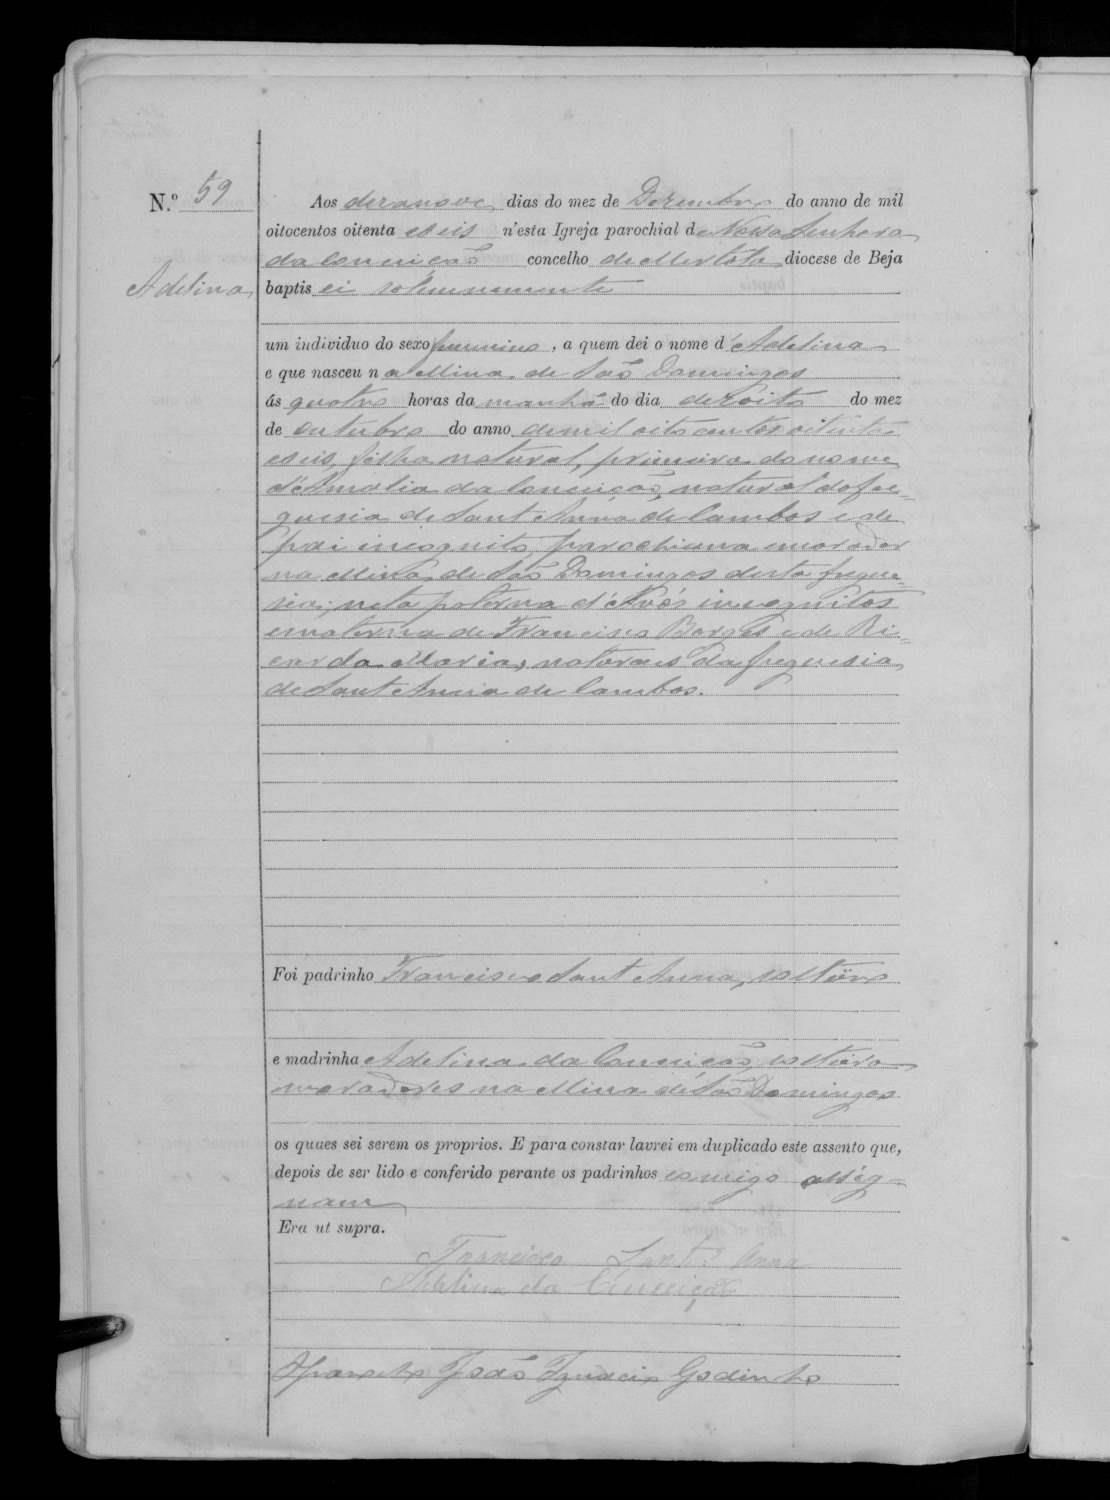 N.º 59
Adelina
Aos dezanove dias do mez de Dezembro do anno de mil
oitocentos oitenta e seis n'esta Igreja parochial de Nossa Senhora
da Conceição concelho de Mertola diocese de Beja
baptisei solemnemente
um individuo do sexo feminino, a quem dei o nome d'Adelina
e que nasceu na Mina de São Domingos
ás quatro horas da manhã do dia dezoito do mez
de outubro do anno de mil oito centos oitenta
e seis, filha natural, primeira do nome
d'Amalia da Conceição, natural da fre-
guesia de Sant Anna de Cambas e de
pai incognito, parochiana e morador
na Mina de São Domingos desta fregue-
sia; neta paterna d'Avós incognitos
e materna de Francisco Borges e de Ri-
carda Maria, naturaes da freguesia
de Sant Anna de Cambas.
Foi padrinho Francisco Sant Anna, solteiro
e madrinha Adelina da Conceição, solteira
moradores na Mina de São Domingos
os quaes sei serem os proprios. E para constar lavrei em duplicado este assento que,
depois de ser lido e conferido perante os padrinhos comigo assig-
nam
Era ut supra.
Francisco Sant' Anna
Adelina da Conceição
O Parocho João Ignacio Godinho